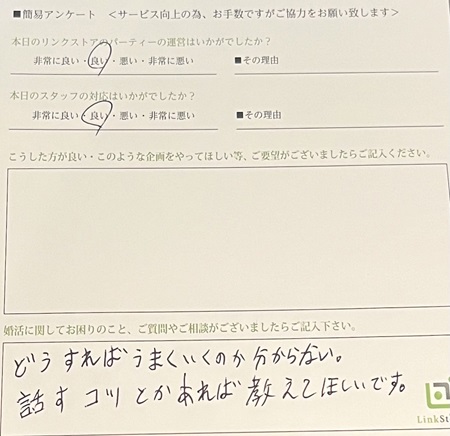 ■簡易アンケート ＜サービス向上の為、お手数ですがご協力をお願い致します＞
本日のリンクストアのパーティーの運営はいかがでしたか？
非常に良い・良い・悪い・非常に悪い ■その理由
本日のスタッフの対応はいかがでしたか？
非常に良い・良い・悪い・非常に悪い ■その理由
こうした方が良い・このような企画をやってほしい等、ご要望がございましたらご記入ください。
婚活に関してお困りのこと、ご質問やご相談がございましたらご記入下さい。
どうすればうまくいくのか分からない。
話すコツとかあれば教えてほしいです。
LinkSt